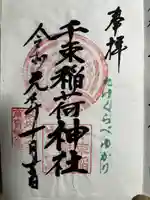 奉拝
たけくらべゆかり
千束稲荷神社
令和元年十一月十五日